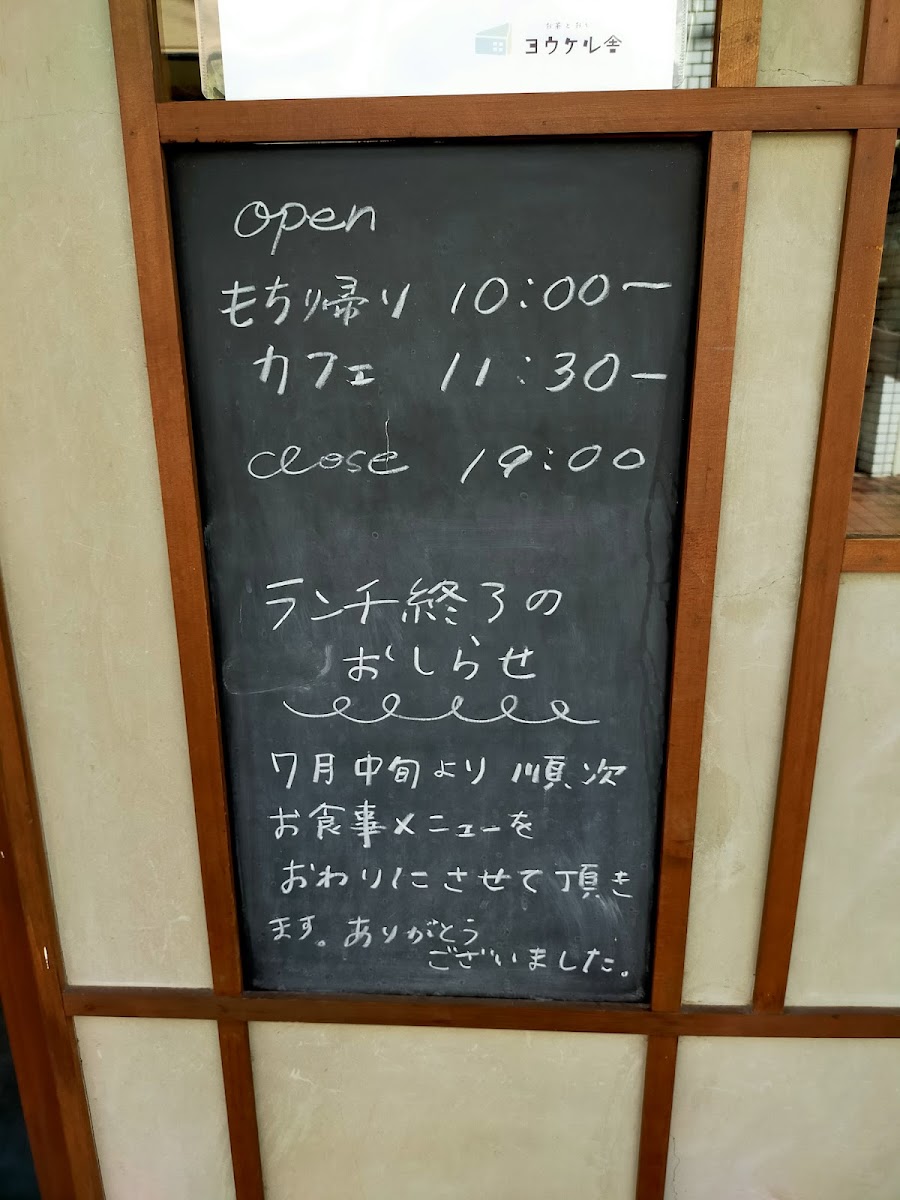 ヨウケル舎
open
もち帰り 10:00〜
カフェ 11:30−
close 19:00
ランチ終了の
おしらせ
7月中旬より順次
お食事メニューを
おわりにさせて頂き
ます。ありがとう
ございました。